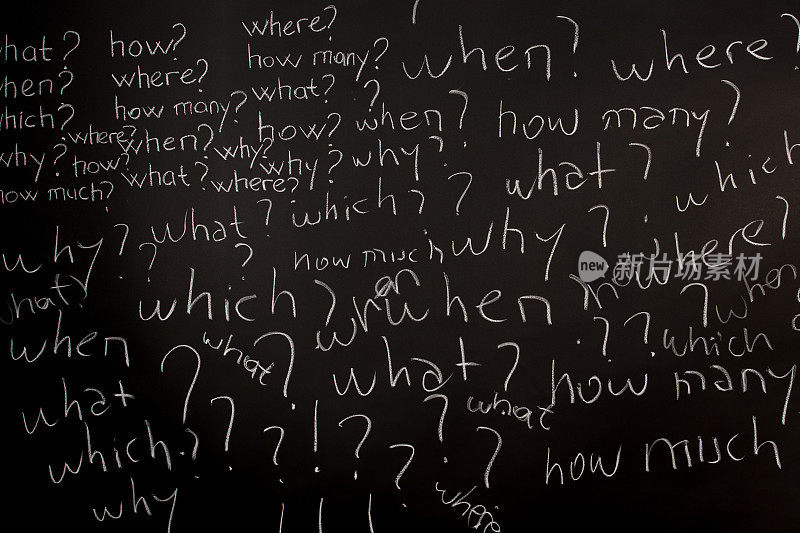 where?
what? how? how many? when? where?
when? where? what?
which? how many? how? when? how many?
where? when? why?
why? how? what? where? why? why? what? which
how much?
what? which? ?
why? ? ? how much why? where?
how
what which? when when
what? ? ? which
when what ? ? what? how many
what what
which? ? ? ! ? ? ? ? how much
why where
new 新浪图片素材